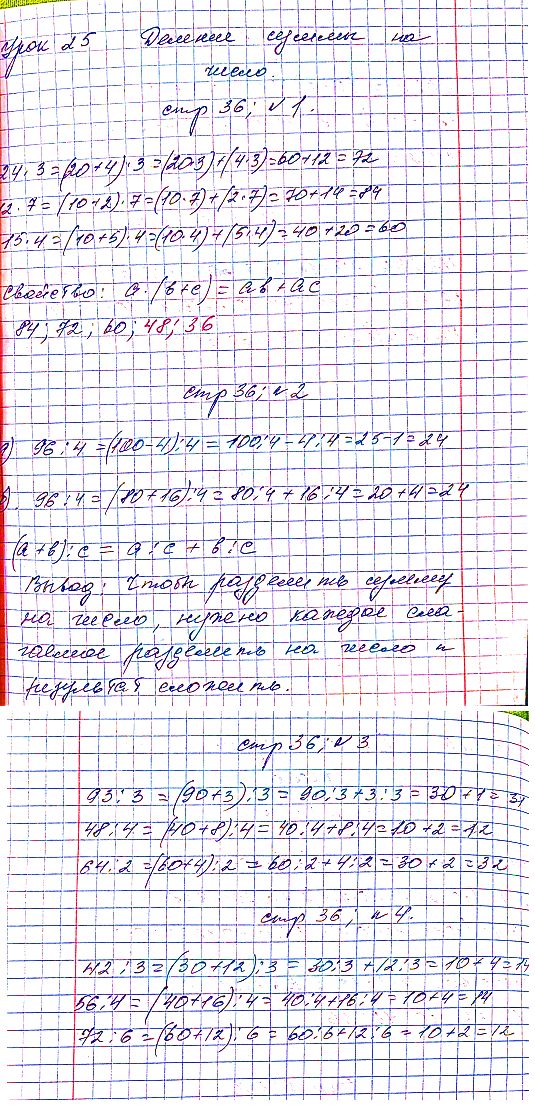 Урок 25 Деление суммы на
число.
стр 36; № 1.
24·3=(20+4)·3=(20·3)+(4·3)=60+12=72
12·7=(10+2)·7=(10·7)+(2·7)=70+14=84
15·4=(10+5)·4=(10·4)+(5·4)=40+20=60
Свойство: a·(в+с)=aв+aс
84; 72; 60; 48; 36
стр 36; № 2
а) 96:4=(100-4):4=100:4-4:4=25-1=24
б). 96:4=(80+16):4=80:4+16:4=20+4=24
(а+в):с=а:с+в:с
Вывод: Чтобы разделить сумму
на число, нужно каждое сла-
гаемое разделить на число и
результат сложить.
стр 36; № 3
93:3=(90+3):3=90:3+3:3=30+1=31
48:4=(40+8):4=40:4+8:4=10+2=12
64:2=(60+4):2=60:2+4:2=30+2=32
стр 36; № 4.
42:3=(30+12):3=30:3+12:3=10+4=14
56:4=(40+16):4=40:4+16:4=10+4=14
72:6=(60+12):6=60:6+12:6=10+2=12